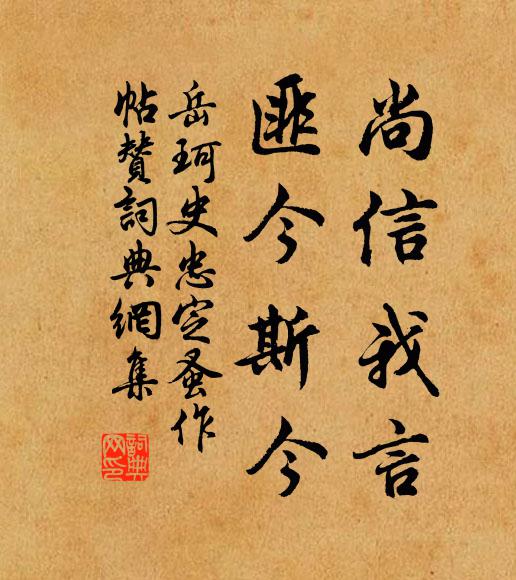 尚信我言
匪今斯今
岳珂史忠定蚤作
帖贊詞典網集
詞典网印